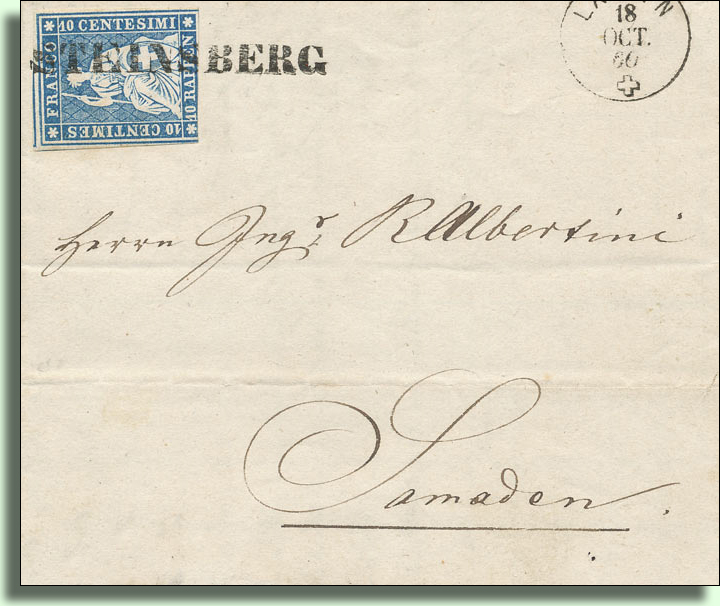 10 CENTESIMI
FRANCO
10 RAPPEN
10 CENTIMES
STEINSBERG
18
OCT.
60
Herrn Ingr. R Albertini
Samaden.